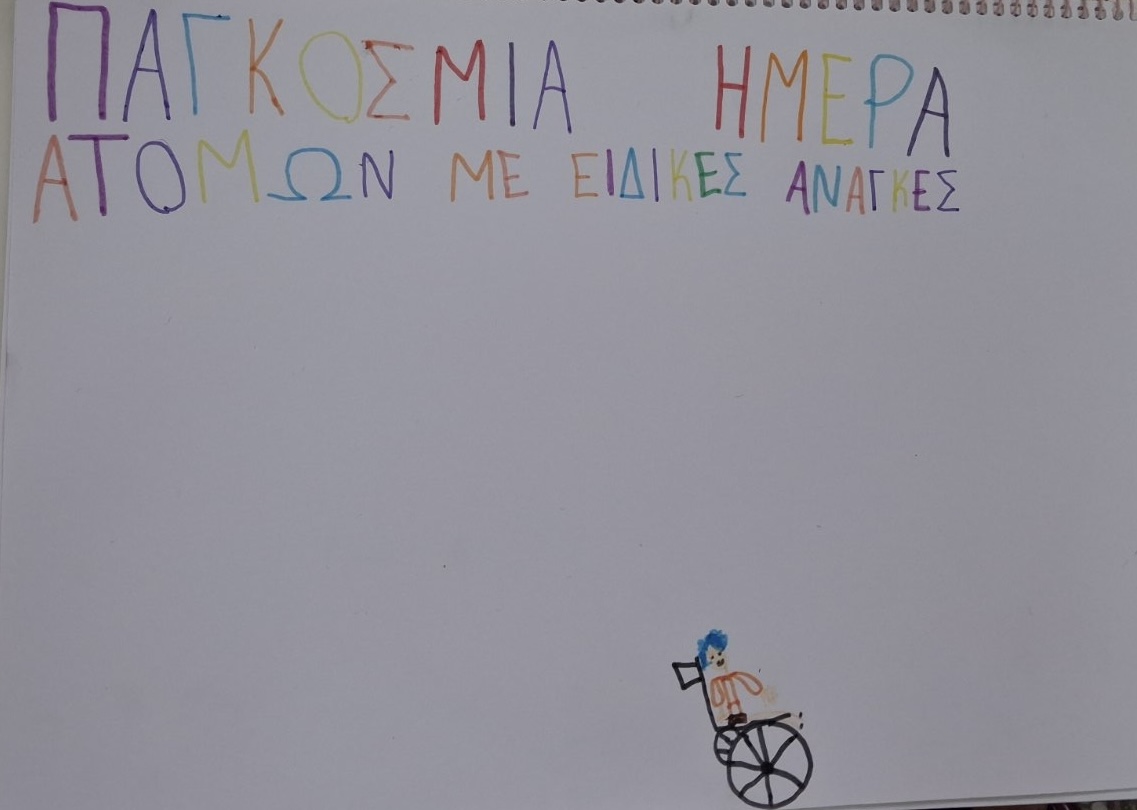 ΠΑΓΚΟΣΜΙΑ ΗΜΕΡΑ
ΑΤΟΜΩΝ ΜΕ ΕΙΔΙΚΕΣ ΑΝΑΓΚΕΣ